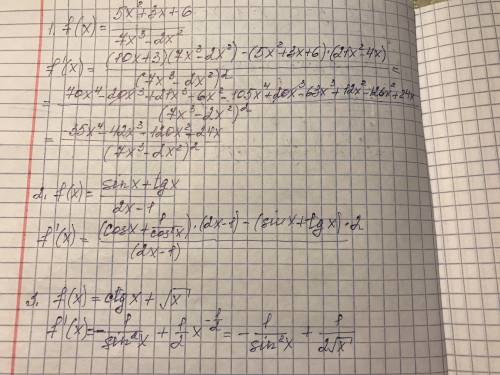 1. f(x) = (5x²+3x+6)/(7x³-2x²)
f'(x) = ((10x+3)(7x³-2x²)-(5x²+3x+6)·(21x²-4x))/(7x³-2x²)² =
= (70x⁴-20x³+21x³-6x²-105x⁴+20x³-63x³+12x²-126x²+24x)/(7x³-2x²)²
= (-35x⁴-42x³-120x²+24x)/(7x³-2x²)²
2. f(x) = (sinx+tgx)/(2x-1)
f'(x) = ((cosx+1/cos²x)·(2x-1)-(sinx+tgx)·2)/(2x-1)
3. f(x) = ctgx+√x
f'(x) = -1/sin²x + 1/2 x^(-1/2) = -1/sin²x + 1/(2√x)